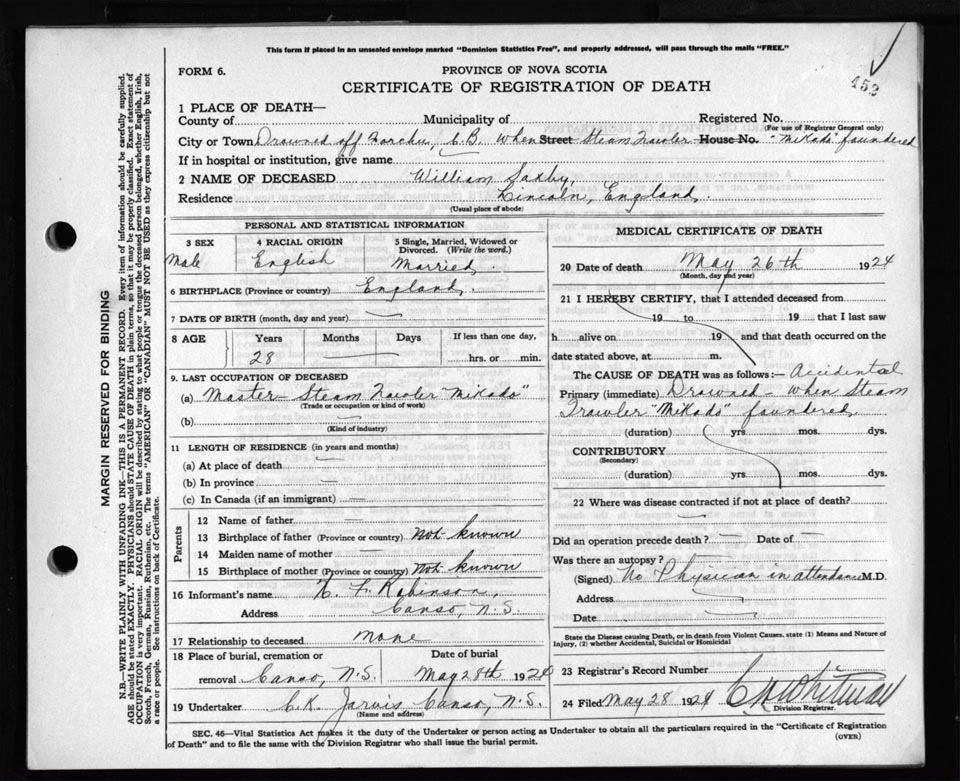 This form if placed in an unsealed envelope marked "Dominion Statistics Free", and properly addressed, will pass through the mails "FREE."
FORM 6.
PROVINCE OF NOVA SCOTIA
CERTIFICATE OF REGISTRATION OF DEATH
453
1 PLACE OF DEATH—
County of Municipality of Registered No.
(For use of Registrar General only)
City or Town Drowned off Forchu, C.B. when Street Steam Trawler House No. "Mikado" foundered
If in hospital or institution, give name
2 NAME OF DECEASED William Saxby
Residence Lincoln, England
(Usual place of abode)
PERSONAL AND STATISTICAL INFORMATION
3 SEX
Male
4 RACIAL ORIGIN
English
5 Single, Married, Widowed or Divorced. (Write the word.)
Married.
6 BIRTHPLACE (Province or country) England.
7 DATE OF BIRTH (month, day and year) —
8 AGE Years Months Days If less than one day,
28 — hrs. or min.
9. LAST OCCUPATION OF DECEASED
(a) Master - Steam Trawler "Mikado"
(Trade or occupation or kind of work)
(b) —
(Kind of industry)
11 LENGTH OF RESIDENCE (in years and months)
(a) At place of death —
(b) In province —
(c) In Canada (if an immigrant) —
Parents
12 Name of father —
13 Birthplace of father (Province or country) Not known
14 Maiden name of mother —
15 Birthplace of mother (Province or country) Not known
16 Informant's name F. Robinson,
Address Canso, N.S.
17 Relationship to deceased None
18 Place of burial, cremation or removal Canso, N.S.
Date of burial
May 28th 1924
19 Undertaker C.K. Jarvis Canso, N.S.
(Name and address)
MEDICAL CERTIFICATE OF DEATH
20 Date of death May 26th 1924
(Month, day and year)
21 I HEREBY CERTIFY, that I attended deceased from
19 to 19 that I last saw
h alive on 19 and that death occurred on the
date stated above, at m.
The CAUSE OF DEATH was as follows:- Accidental
Primary (immediate) Drowned - when Steam
Trawler "Mikado" foundered.
(duration) yrs. mos. dys.
CONTRIBUTORY
(Secondary)
(duration) yrs. mos. dys.
22 Where was disease contracted if not at place of death?
—
Did an operation precede death? — Date of —
Was there an autopsy? —
(Signed) No Physician in attendance M.D.
Address —
Date —
State the Disease causing Death, or in death from Violent Causes, state (1) Means and Nature of Injury, (2) whether Accidental, Suicidal or Homicidal
23 Registrar's Record Number
24 Filed May 28 1924 Whitman
Division Registrar.
SEC. 46—Vital Statistics Act makes it the duty of the Undertaker or person acting as Undertaker to obtain all the particulars required in the "Certificate of Registration
of Death" and to file the same with the Division Registrar who shall issue the burial permit.
(OVER)
MARGIN RESERVED FOR BINDING
N.B.—WRITE PLAINLY WITH UNFADING INK—THIS IS A PERMANENT RECORD. Every item of information should be carefully supplied.
AGE should be stated EXACTLY. PHYSICIANS should STATE CAUSE OF DEATH in plain terms, so that it may be properly classified. Exact statement of
OCCUPATION is very important. RACIAL ORIGIN will be described by stating to what people or tongue the deceased person belonged, whether English, Irish,
Scotch, French, German, Russian, Ruthenian, etc. The terms "AMERICAN" OR "CANADIAN" MUST NOT BE USED as they express citizenship but not
a race or people. See instructions on back of Certificate.